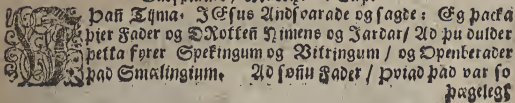 Þañ Tijma. JEsus Andsvarade og sagde: Eg þacka
þier Fader og DRotteñ Himens og Jardar/ Ad þu dulder
þetta fyrer Spekingum og Vitringum/ og Openberader
þad Smælingium. Ad soñu Fader/ þviad þad var so
þægelegt